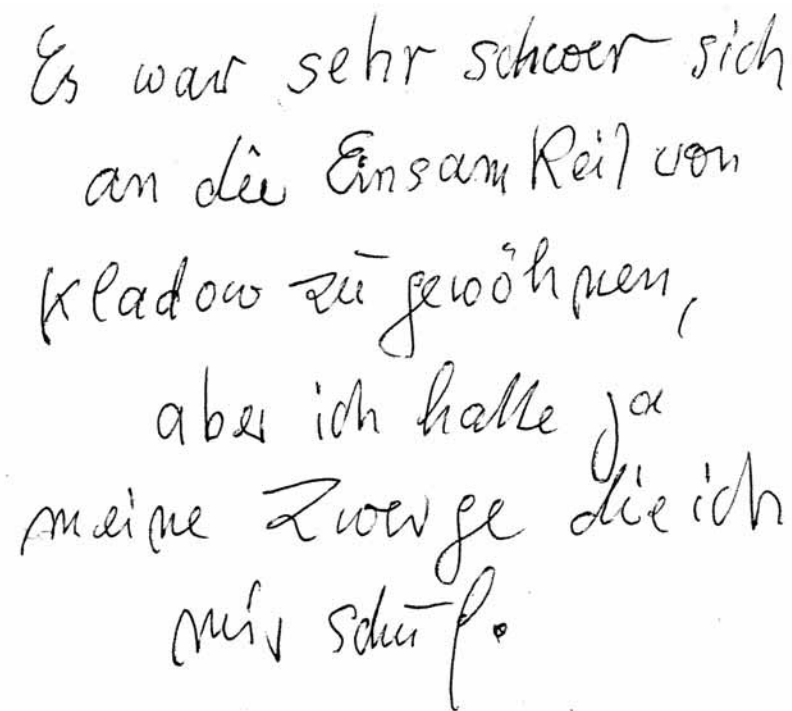 Es war sehr schwer sich
an die Einsamkeit von
Kladow zu gewöhnen,
aber ich hatte ja
meine Zwerge die ich
mir schuf.